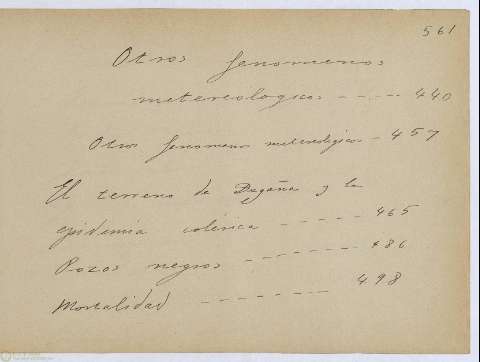 561
Otros fenomenos
metereologicos ----- 440
Otros fenomenos metereologicos - 457
El terreno de Dagaña y la
epidemia colérica ------ 465
Pozos negros ------ 486
Mortalidad ------- 498